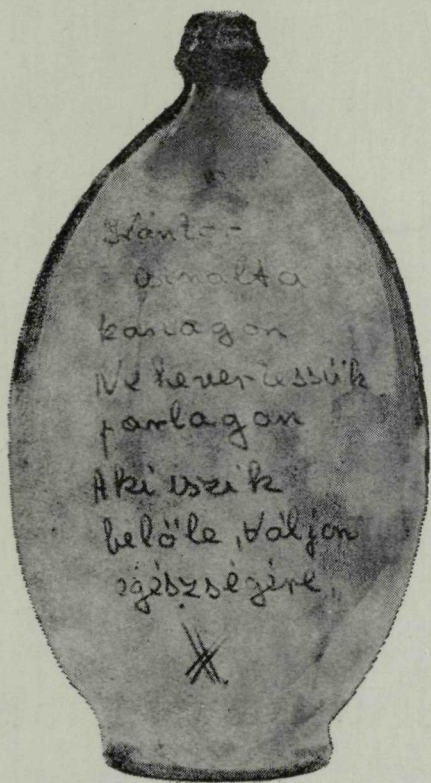 Kántor
csinálta
kanagon
Ne hevertessük
parlagon
Aki iszik
belőle, váljon
egészségére.